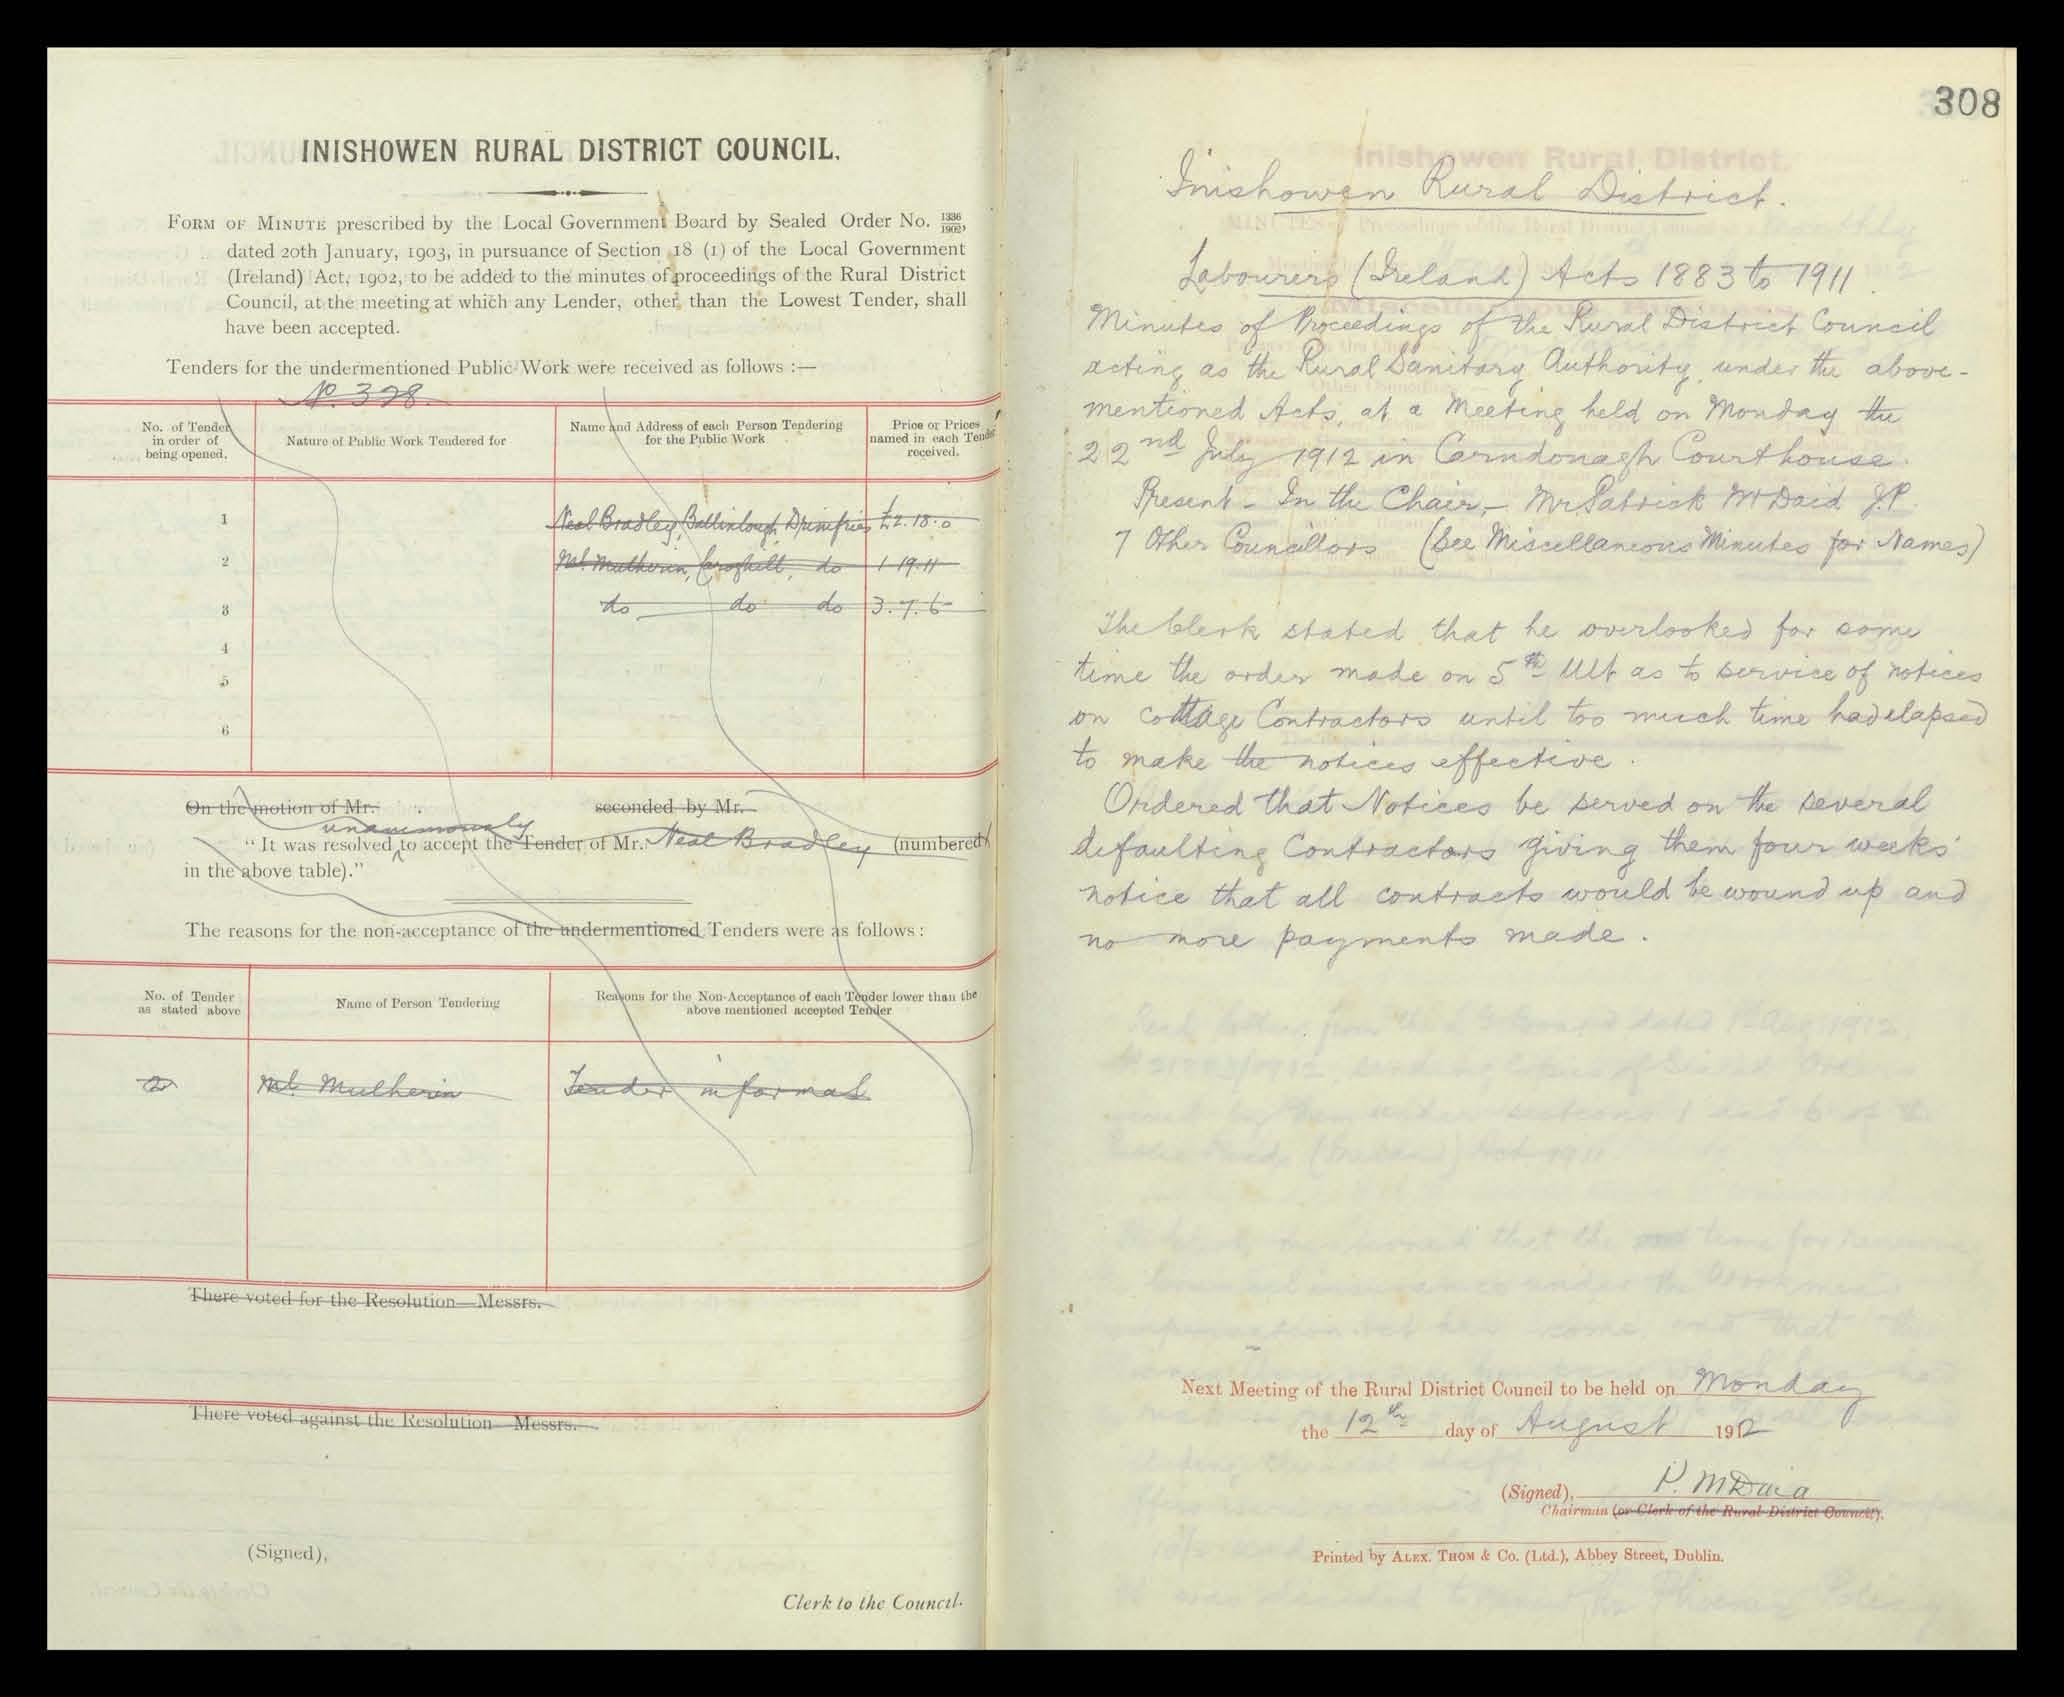 INISHOWEN RURAL DISTRICT COUNCIL.
FORM OF MINUTE prescribed by the Local Government Board by Sealed Order No. 1336/1902,
dated 20th January, 1903, in pursuance of Section 18 (1) of the Local Government
(Ireland) Act, 1902, to be added to the minutes of proceedings of the Rural District
Council, at the meeting at which any Lender, other than the Lowest Tender, shall
have been accepted.
Tenders for the undermentioned Public Work were received as follows :—
No. 398.
No. of Tender in order of being opened.
Nature of Public Work Tendered for
Name and Address of each Person Tendering for the Public Work
Price or Prices named in each Tender received.
1 Neal Bradley, Ballinlough, Drimfries £2.18.0
2 Ml. Mulherin, do 1-19.11
3 do do do 3.7.6
4
5
6
On the motion of Mr. seconded by Mr.
unanimously
"It was resolved to accept the Tender of Mr. Neal Bradley (numbered 1
in the above table)."
The reasons for the non-acceptance of the undermentioned Tenders were as follows :
No. of Tender as stated above
Name of Person Tendering
Reasons for the Non-Acceptance of each Tender lower than the above mentioned accepted Tender
2 Ml. Mulherin Tender informal
There voted for the Resolution—Messrs.
There voted against the Resolution—Messrs.
(Signed),
Clerk to the Council.
308
Inishowen Rural District.
Labourers (Ireland) Acts 1883 to 1911.
Minutes of Proceedings of the Rural District Council
acting as the Rural Sanitary Authority, under the above-
mentioned Acts, at a Meeting held on Monday the
22nd July 1912 in Carndonagh Courthouse.
Present - In the Chair, - Mr Patrick McDaid J.P.
7 Other Councillors (See Miscellaneous Minutes for Names)
The Clerk stated that he overlooked for some
time the order made on 5th Ult as to service of notices
on cottage Contractors until too much time had elapsed
to make the notices effective.
Ordered that Notices be served on the several
defaulting Contractors giving them four weeks'
notice that all contracts would be wound up and
no more payments made.
Next Meeting of the Rural District Council to be held on Monday
the 12th day of August 1912
(Signed), P. McDaid
Chairman (or Clerk of the Rural District Council).
Printed by ALEX. THOM & Co. (Ltd.), Abbey Street, Dublin.